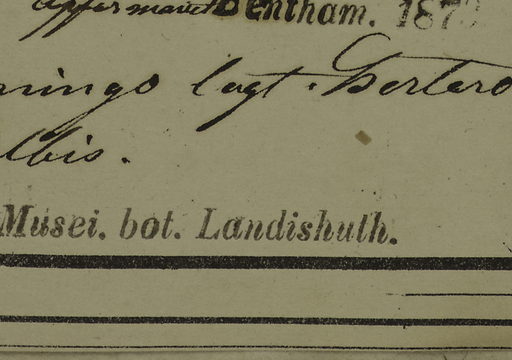 Bentham. 187
mingo legt. Bertero
lbis.
Musei. bot. Landishuth.